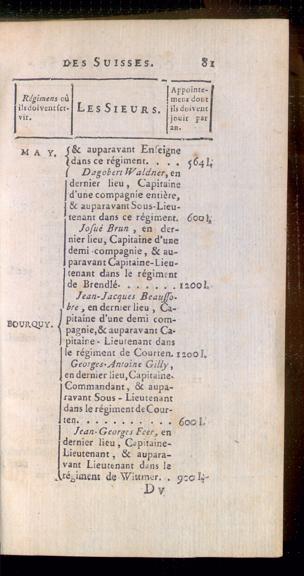 DES SUISSES. 81
Régimens où
ils doivent ser-
vir.
LES SIEURS.
Appointe-
mens dont
ils doivent
jouir par
an.
MAY. & auparavant Enseigne
dans ce régiment. . . . 564 l.
Dagobert Waldner, en
dernier lieu, Capitaine
d'une compagnie entière,
& auparavant Sous-Lieu-
tenant dans ce régiment. 600 l.
Josué Brun, en der-
nier lieu, Capitaine d'une
demi-compagnie, & au-
paravant Capitaine-Lieu-
tenant dans le régiment
de Brendlé. . . . . . . 1200 l.
Jean-Jacques Beausso-
bre, en dernier lieu, Ca-
BOURQUY. pitaine d'une demi com-
pagnie, & auparavant Ca-
pitaine-Lieutenant dans
le régiment de Courten. 1200 l.
Georges-Antoine Gilly,
en dernier lieu, Capitaine-
Commandant, & aupa-
ravant Sous-Lieutenant
dans le régiment de Cour-
ten. . . . . . . . . . . 600 l.
Jean-Georges Feer, en
dernier lieu, Capitaine-
Lieutenant, & aupara-
vant Lieutenant dans le
régiment de Wittmer. . 900 l.
D v